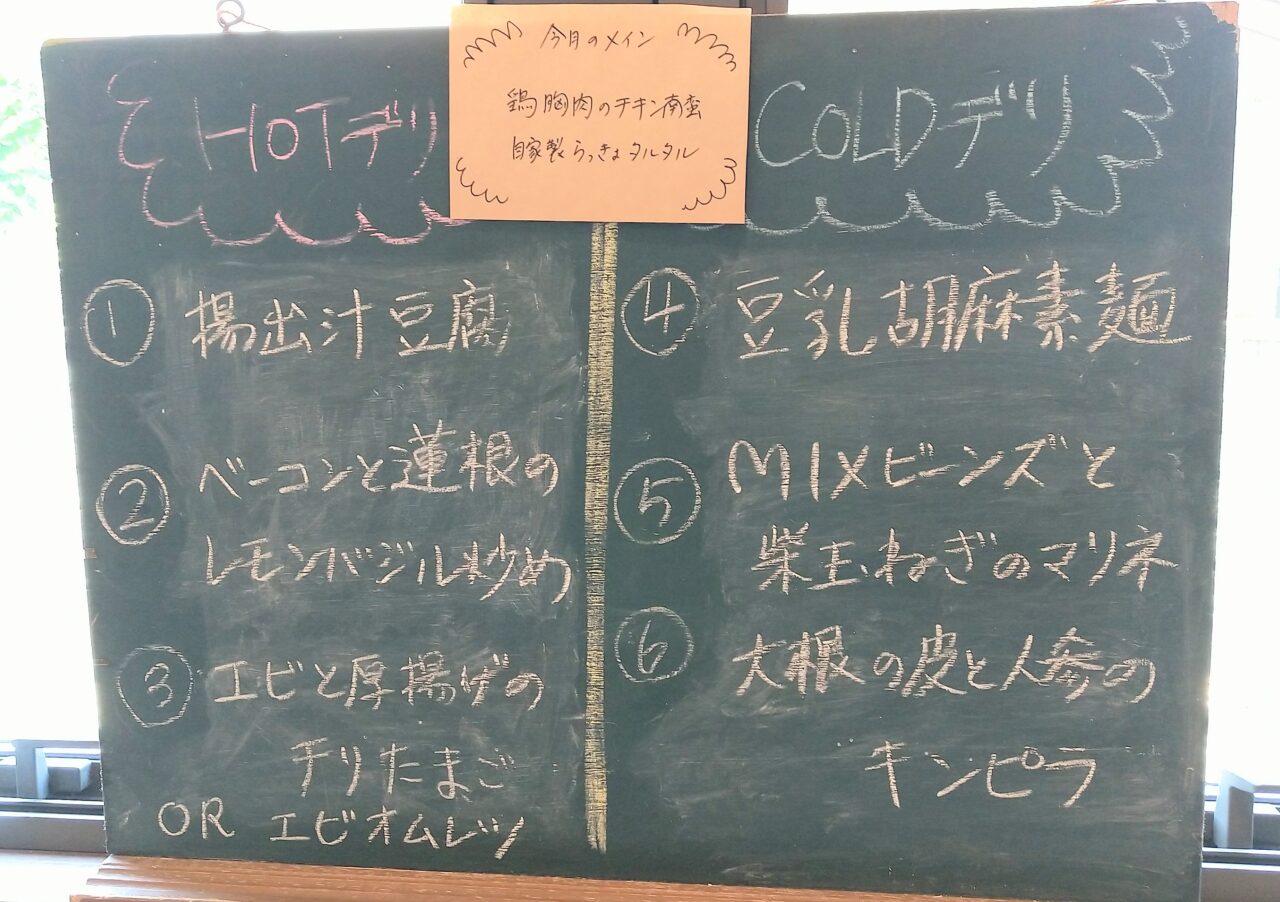 今月のメイン
鶏胸肉のチキン南蛮
自家製らっきょタルタル
HOTデリ
① 揚出汁豆腐
② ベーコンと蓮根の
レモンバジル炒め
③ エビと厚揚げの
チリたまご
OR エビオムレツ
COLDデリ
④ 豆乳胡麻素麺
⑤ MIXビーンズと
柴玉ねぎのマリネ
⑥ 大根の皮と人参の
キンピラ